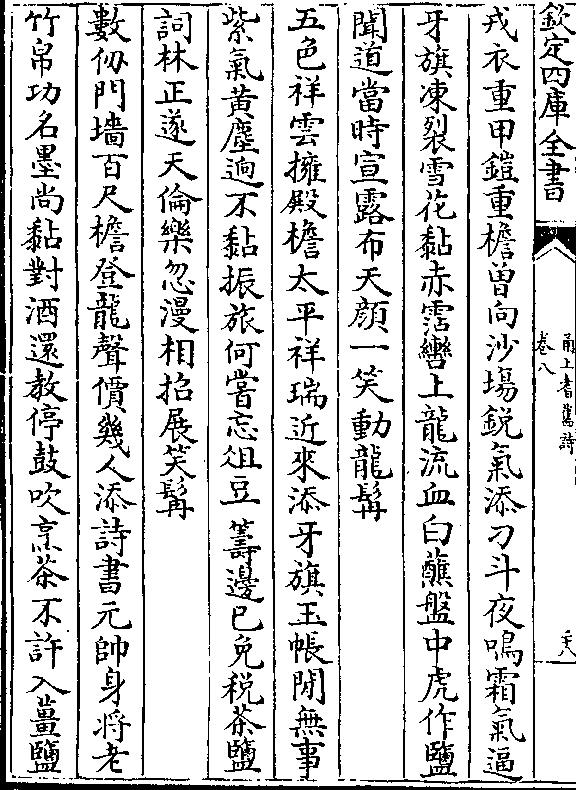 欽定四庫全書
甬上耆舊詩
卷八
戎衣重甲鎧重檐曽向沙塲鋭氣添刁斗夜鳴霜氣逼
牙旗凍裂雪花黏赤霑轡上龍流血白蘸盤中虎作鹽
聞道當時宣露布天顔一笑動龍髯
五色祥雲擁殿檐太平祥瑞近來添牙旗玉帳閒無事
紫氣黄塵逈不黏振旅何嘗忘俎豆籌邊已免税茶鹽
詞林正遂天倫樂忽漫相招展笑髯
數仭門墻百尺檐登龍聲價幾人添詩書元帥身將老
竹帛功名墨尚黏對酒還教停鼓吹烹茶不許入薑鹽